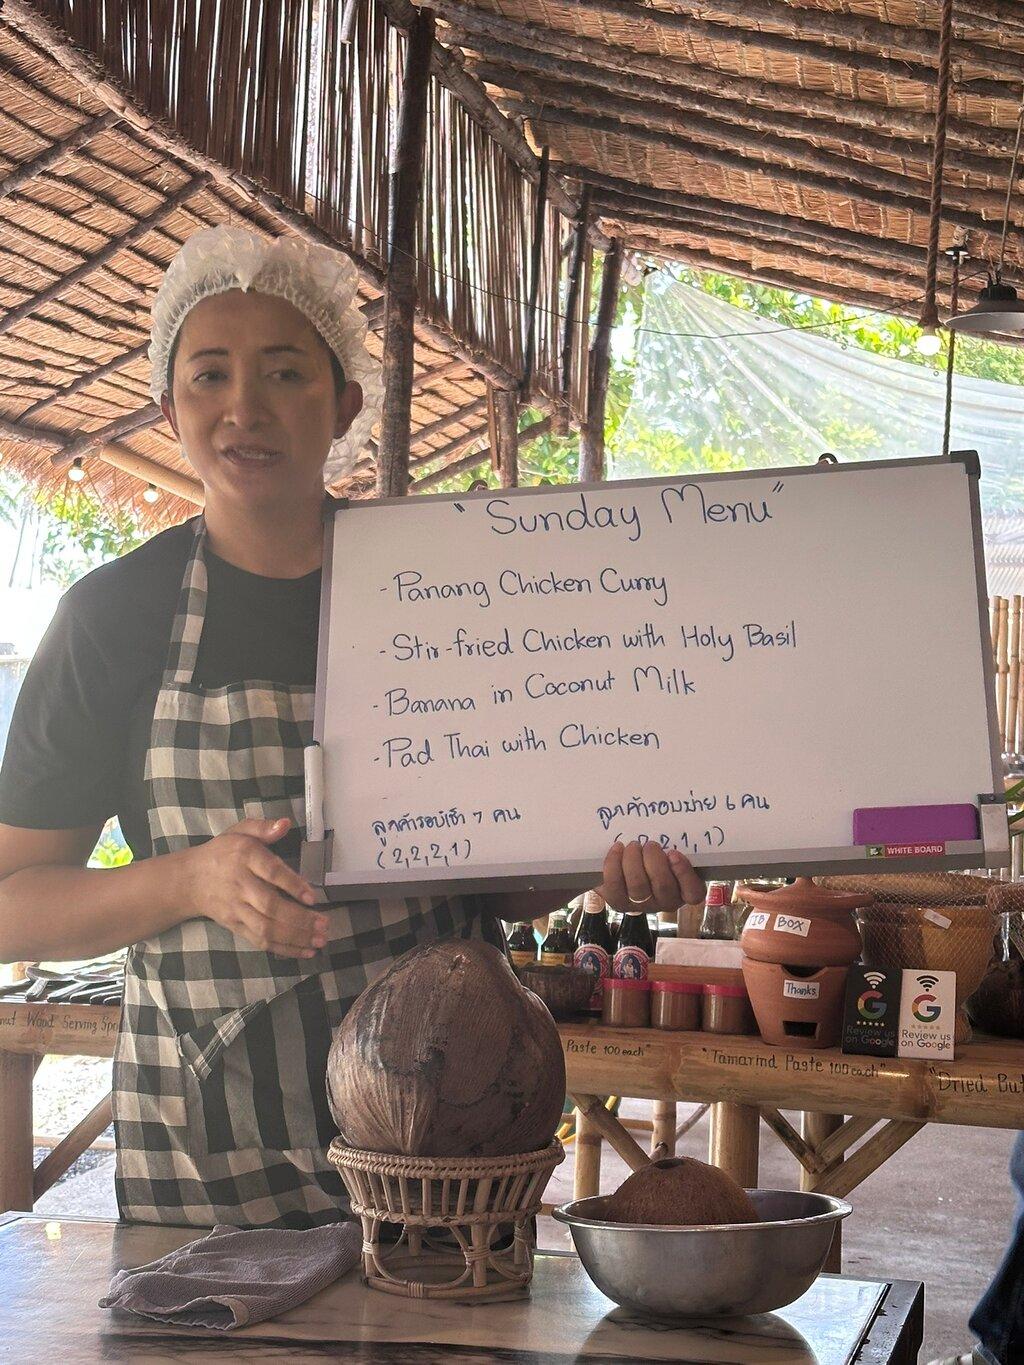 "Sunday Menu"
- Panang Chicken Curry
- Stir-fried Chicken with Holy Basil
- Banana in Coconut Milk
- Pad Thai with Chicken
ลูกค้ารอบเช้า 7 คน
(2,2,2,1)
ลูกค้ารอบบ่าย 6 คน
2,1,1)
WHITE BOARD
BOX
Thanks
Review us
on Google
Review us
on Google
Wood Serving
Paste 100 each"
"Tamarind Paste 100 each"
"Dried